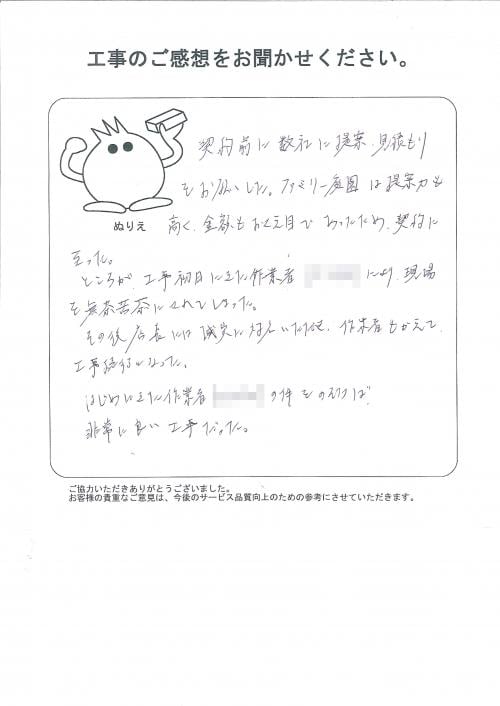 工事のご感想をお聞かせください。
契約前に数社に提案、見積もり
をお願いした。ファミリー庭園は提案力も
ぬりえ
高く、金額もおさえ目であったため、契約に
至った。
ところが、工事初日にきた作業者 により、現場
を無茶苦茶にされてしまった。
その後店長には誠実に対応いただけ、作業者もかえて、
工事続行となった。
はじめにきた作業者 の件をのぞけば
非常に良い工事だった。
ご協力いただきありがとうございました。
お客様の貴重なご意見は、今後のサービス品質向上のための参考にさせていただきます。